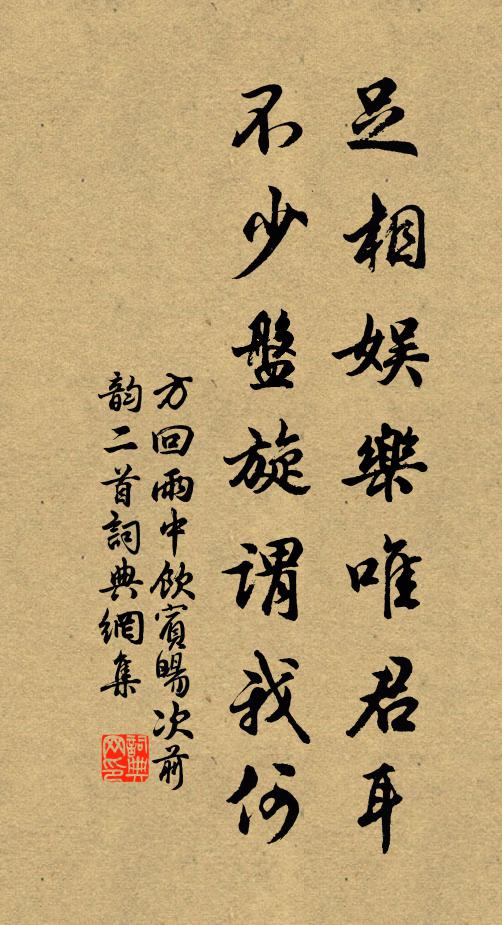 足相娛樂唯君耳
不少盤旋謂我何
方回雨中飲賓暘次前
韵二首詞典網集
詞典
网印